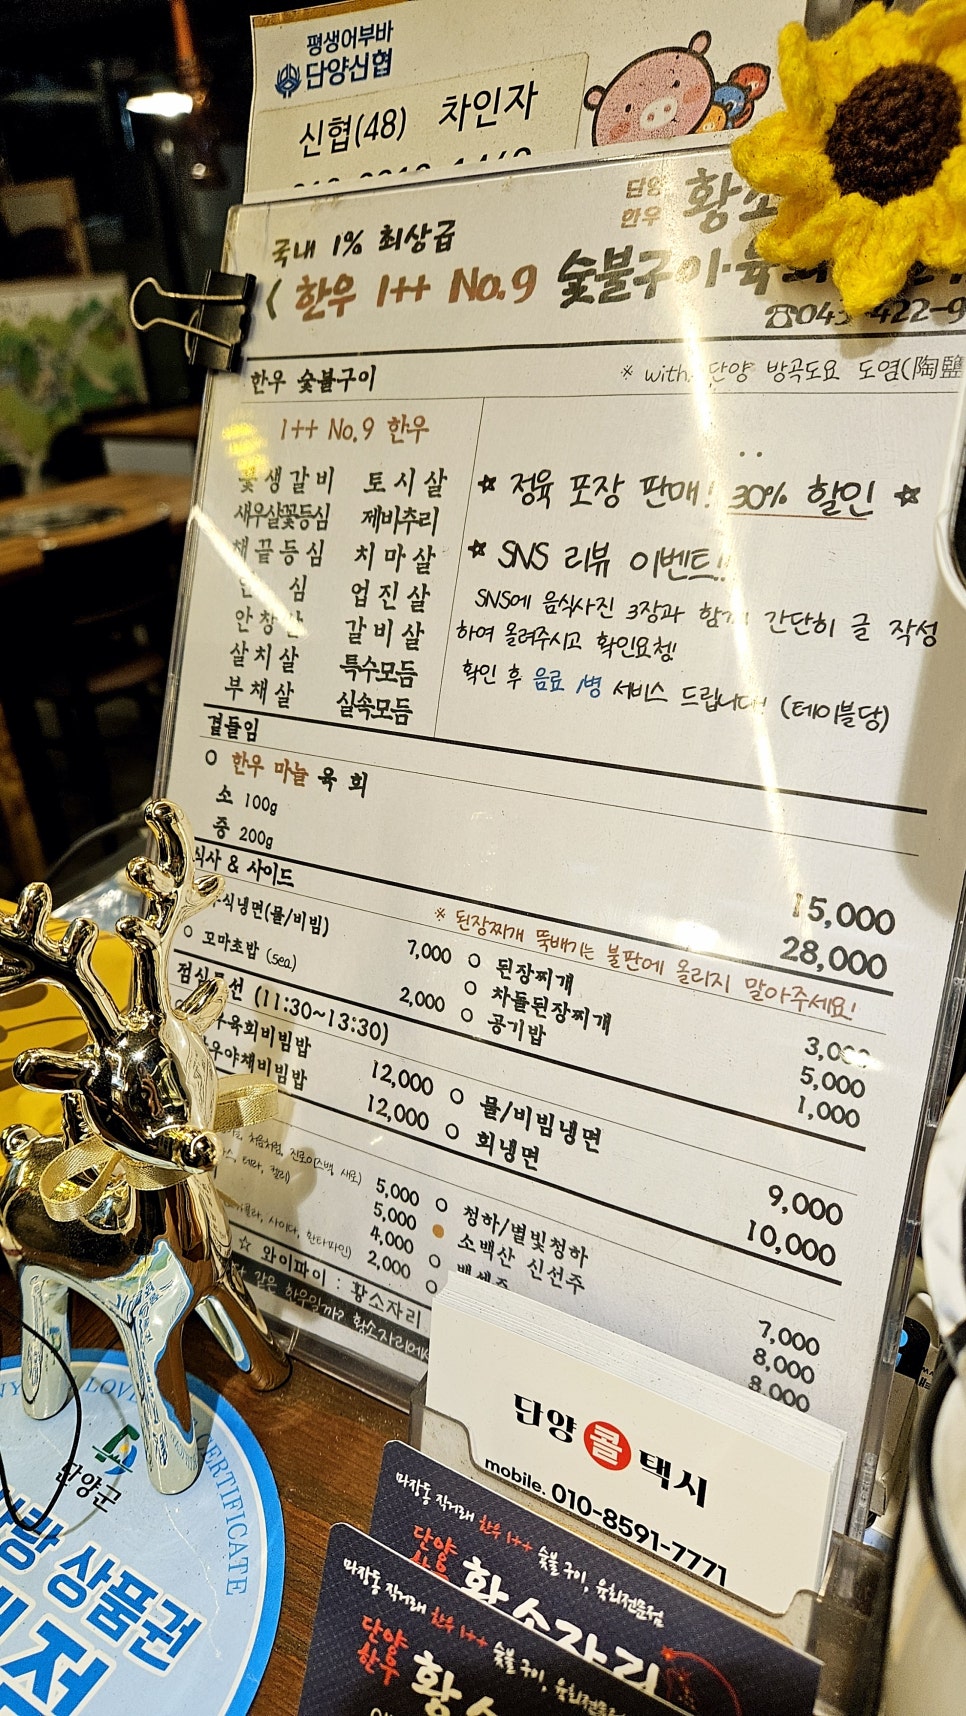 평생어부바
단양신협
신협(48) 차인자
단양
한우
국내 1% 최상급
한우 1++ No.9 숯불구이·육회
☎043-422-9
한우 숯불구이
※ with. 단양 방곡도요 도염(陶鹽
1++ No.9 한우
꽃생갈비 토시살
새우살꽃등심 제비추리
채끝등심 치마살
안심 업진살
안창살 갈비살
살치살 특수모듬
부채살 실속모듬
☆ 정육 포장 판매! 30% 할인 ☆
☆ SNS 리뷰 이벤트!!
SNS에 음식사진 3장과 함께 간단히 글 작성
하여 올려주시고 확인요청!
확인 후 음료 1병 서비스 드립니다! (테이블당)
곁들임
○ 한우 마늘 육회
소 100g 15,000
중 200g 28,000
식사 & 사이드
※ 된장찌개 뚝배기는 불판에 올리지 말아주세요!
식냉면(물/비빔) 7,000 ○ 된장찌개 3,000
○ 꼬마초밥 (5ea) 2,000 ○ 차돌된장찌개 5,000
○ 공기밥 1,000
점심특선 (11:30~13:30)
육회비빔밥 12,000 ○ 물/비빔냉면 9,000
야채비빔밥 12,000 ○ 회냉면 10,000
처음처럼, 진로이즈백, 새로) 5,000 ○ 청하/별빛청하 7,000
테라, 켈리) 5,000 소백산 신선주 8,000
4,000 ○ 백세주 8,000
사이다, 환타파인) 2,000 ○
☆ 와이파이 : 황소자리
다 같은 한우일까? 황소자리에서
단양 콜 택시
mobile. 010-8591-7771
마장동 직거래 한우 1++ 숯불 구이, 육회전문점
단양
황소자리
마장동 직거래 한우 1++ 숯불 구이, 육회전문점
단양
한우
황소
LOVE
CERTIFICATE
단양군
사랑 상품권